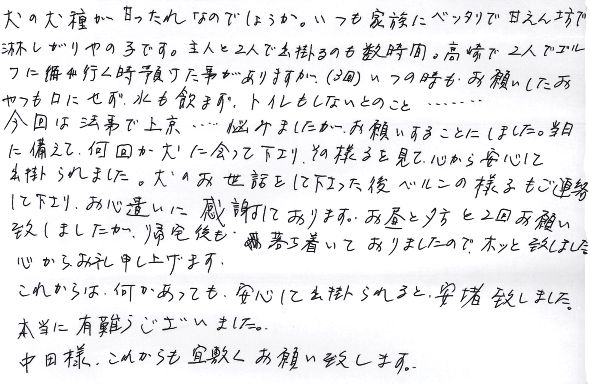 犬の犬種が甘ったれなのでしょうか。いつも家族にベッタリで甘えん坊で
淋しがりやの子です。主人と2人で出掛るのも数時間。高崎で2人でゴル
フに備え行く時預けた事がありますが、(3回)いつの時も、お願いしたお
やつも口にせず、水も飲まず、トイレもしないとのこと………
今回は法事で上京‥‥悩みましたが、お願いすることにしました。当日
に備えて、何回か犬に会って下さり、その様子を見て、心から安心して
出掛られました。犬のお世話をして下さった後ベルンの様子もご連絡
して下さり、お心遣いに感謝しております。お昼と夕方と2回お願い
致しましたが、帰宅後も、落ち着いておりましたので、ホッと致しました
心からお礼申し上げます。
これからは、何かあっても、安心して出掛られると、安堵致しました。
本当に有難うございました。
中田様、これからも宜敷くお願い致します。